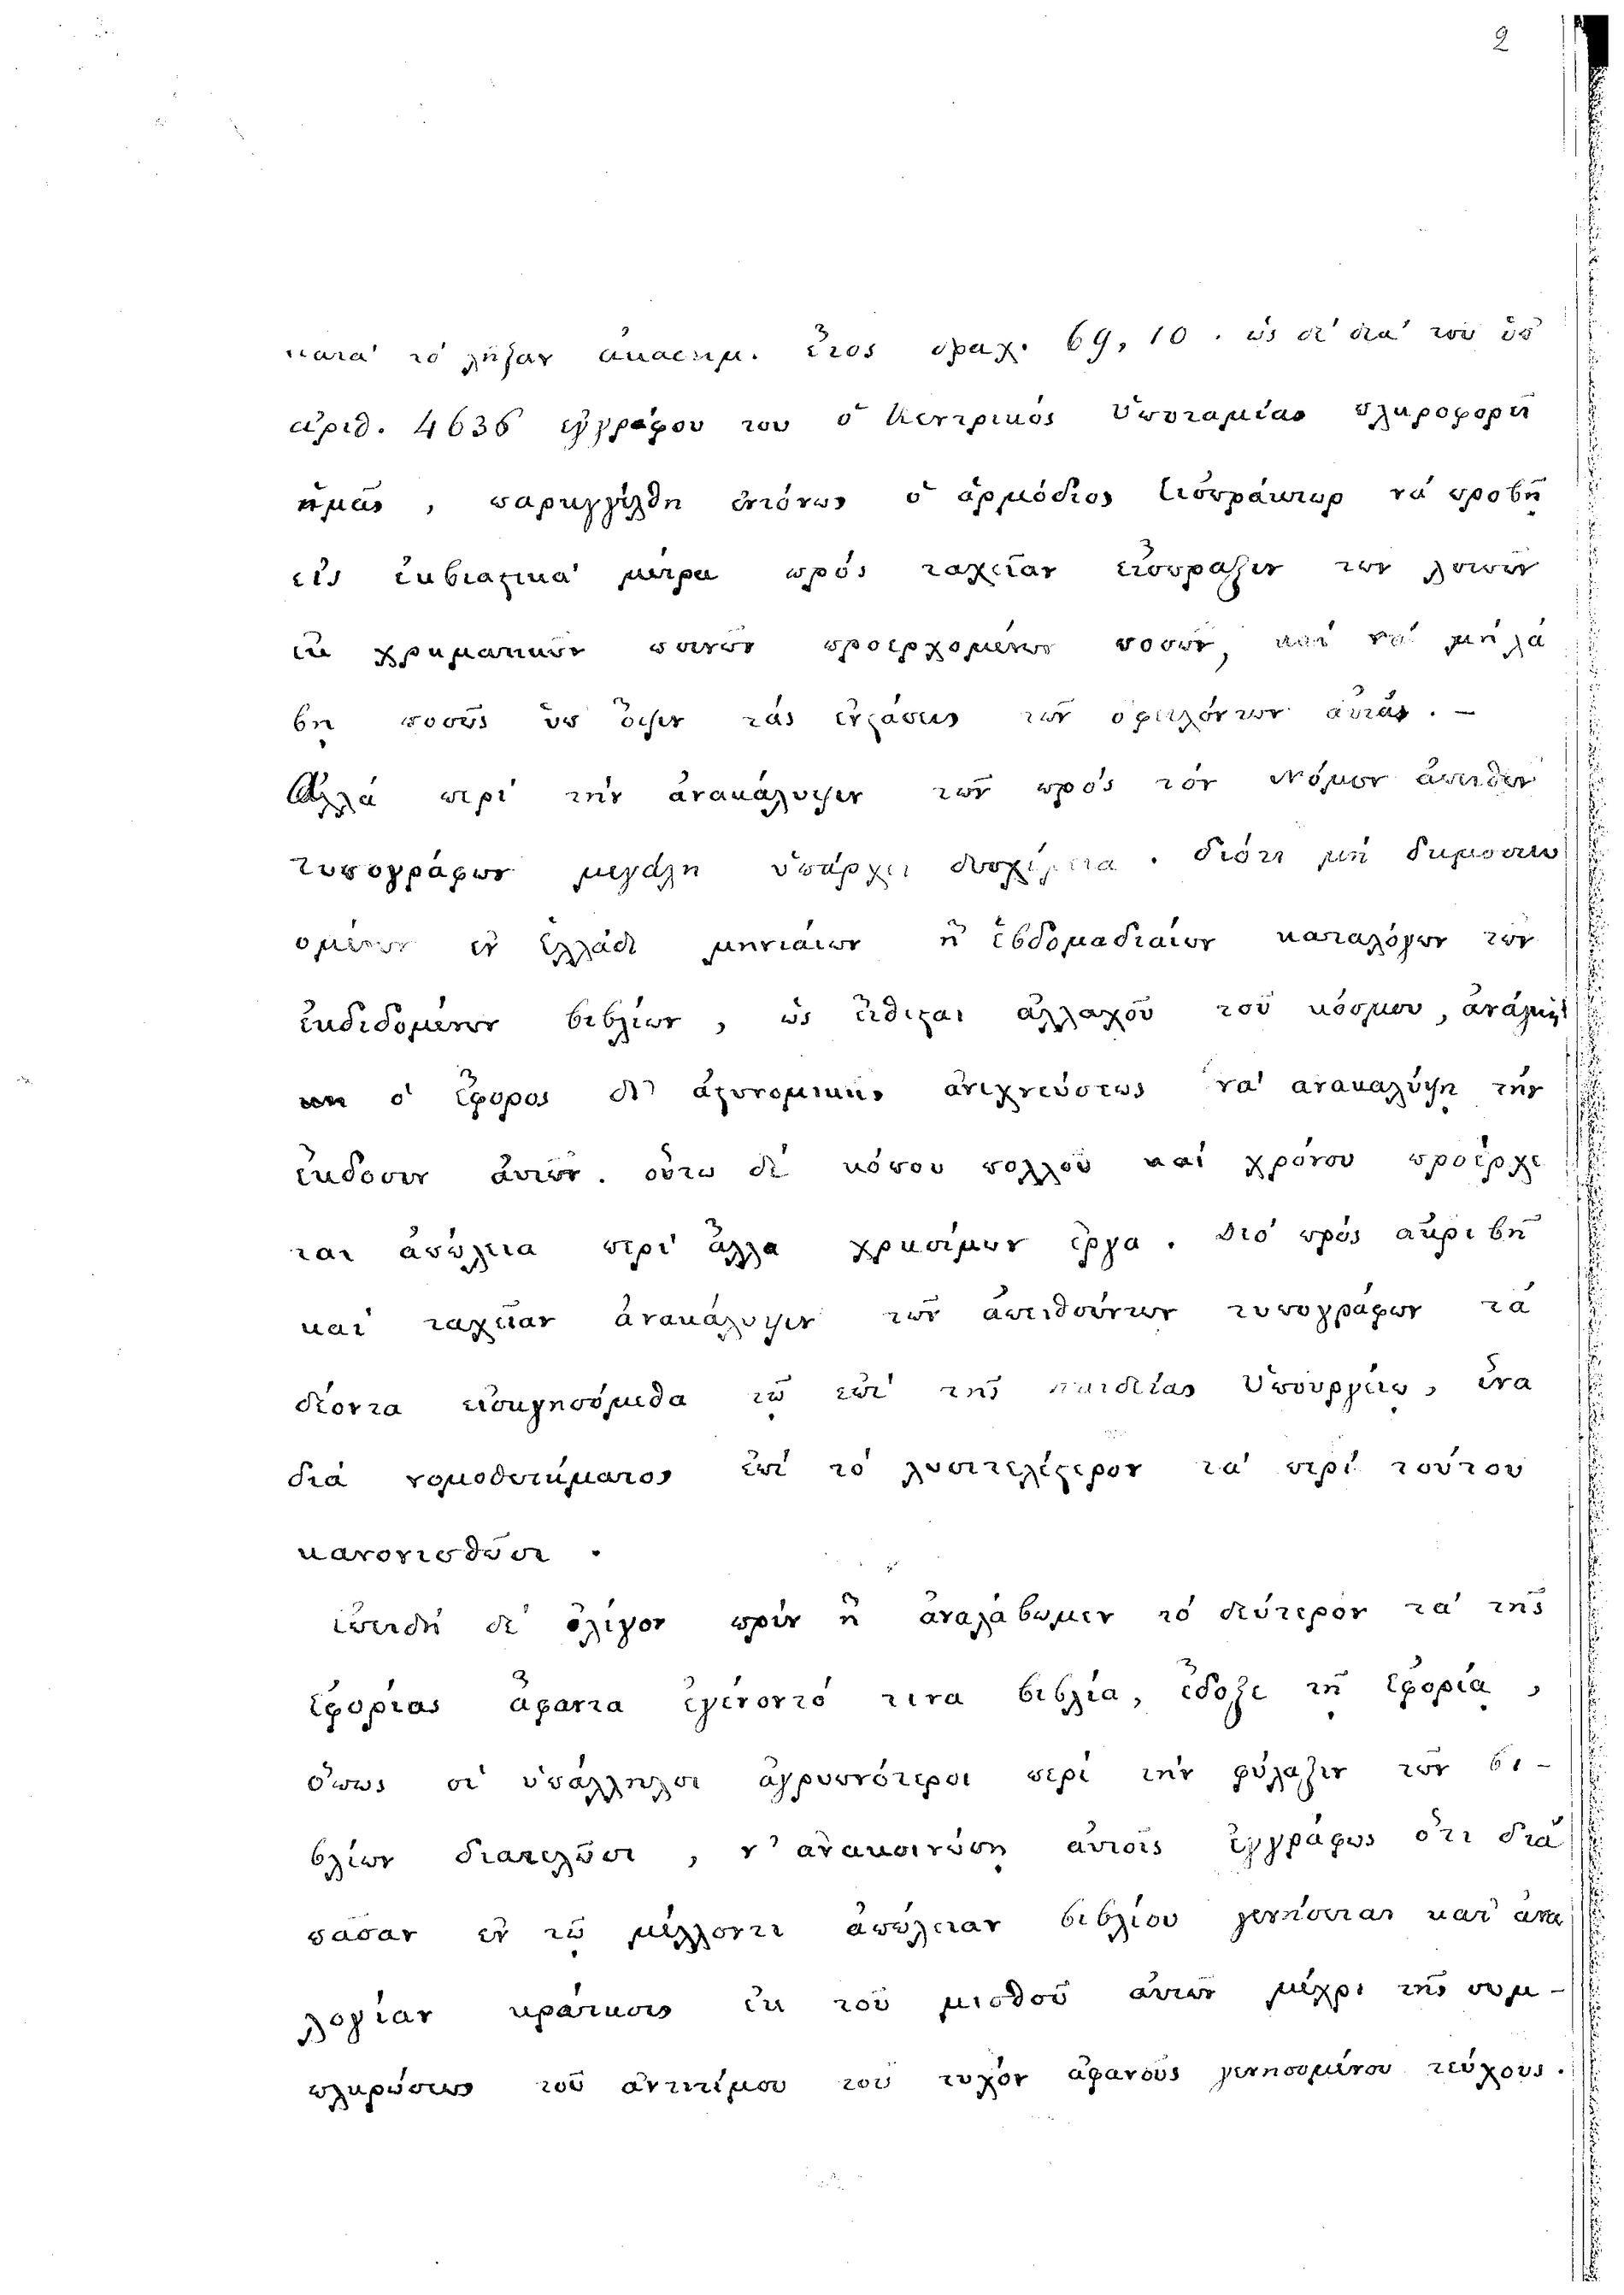 2
κατὰ τὸ λῆξαν ἀκαδημ. ἔτος δραχ. 69, 10. ὡς δὲ διὰ τοῦ ὑπ'
ἀριθ. 4636 ἐγγράφου του ὁ Κεντρικὸς Ὑποταμίας πληροφορεῖ
ἡμᾶς, παρηγγέλθη ἐντόνως ὁ ἁρμόδιος Εἰσπράκτωρ νὰ προβῇ
εἰς ἐκβιαστικὰ μέτρα πρὸς ταχεῖαν εἴσπραξιν τῶν λοιπῶν
ἐκ χρηματικῶν ποινῶν προερχομένων ποσῶν, καὶ νὰ μὴ λά
βῃ ποσῶς ὑπ' ὄψιν τὰς ἐνστάσεις τῶν ὀφειλόντων αὐτάς. –
Ἀλλὰ περὶ τὴν ἀνακάλυψιν τῶν πρὸς τὸν Νόμον ἀπειθῶν
τυπογράφων μεγάλη ὑπάρχει δυσχέρεια. διότι μὴ δημοσιευ
ομένων ἐν Ἑλλάδι μηνιαίων ἢ ἑβδομαδιαίων καταλόγων τῶν
ἐκδιδομένων βιβλίων, ὡς εἴθισται ἀλλαχοῦ τοῦ κόσμου, ἀνάγκη
ὁ Ἔφορος δι' ἀστυνομικῆς ἀνιχνεύσεως νὰ ἀνακαλύψῃ τὴν
ἔκδοσιν αὐτῶν. οὕτω δὲ κόπου πολλοῦ καὶ χρόνου προέρχε
ται ἀπώλεια περὶ ἄλλα χρησίμων ἔργα. διὸ πρὸς ἀκριβῆ
καὶ ταχεῖαν ἀνακάλυψιν τῶν ἀπειθούντων τυπογράφων τὰ
δέοντα εἰσηγησόμεθα τῷ ἐπὶ τῆς παιδείας Ὑπουργείῳ, ἵνα
διὰ νομοθετήματος ἐπὶ τὸ λυσιτελέστερον τὰ περὶ τούτου
κανονισθῶσι.
Ἐπειδὴ δὲ ὀλίγον πρὶν ἢ ἀναλάβωμεν τὸ δεύτερον τὰ τῆς
Ἐφορίας ἄφαντα ἐγένοντό τινα βιβλία, ἔδοξε τῇ Ἐφορίᾳ,
ὅπως οἱ ὑπάλληλοι ἀγρυπνότεροι περὶ τὴν φύλαξιν τῶν βι-
βλίων διατελῶσι, ν' ἀνακοινώσῃ αὐτοῖς ἐγγράφως ὅτι διὰ
πᾶσαν ἐν τῷ μέλλοντι ἀπώλειαν βιβλίου γενήσεται κατ' ἀνα
λογίαν κράτησις ἐκ τοῦ μισθοῦ αὐτῶν μέχρι τῆς συμ-
πληρώσεως τοῦ ἀντιτίμου τοῦ τυχὸν ἀφανοῦς γενησομένου τεύχους.